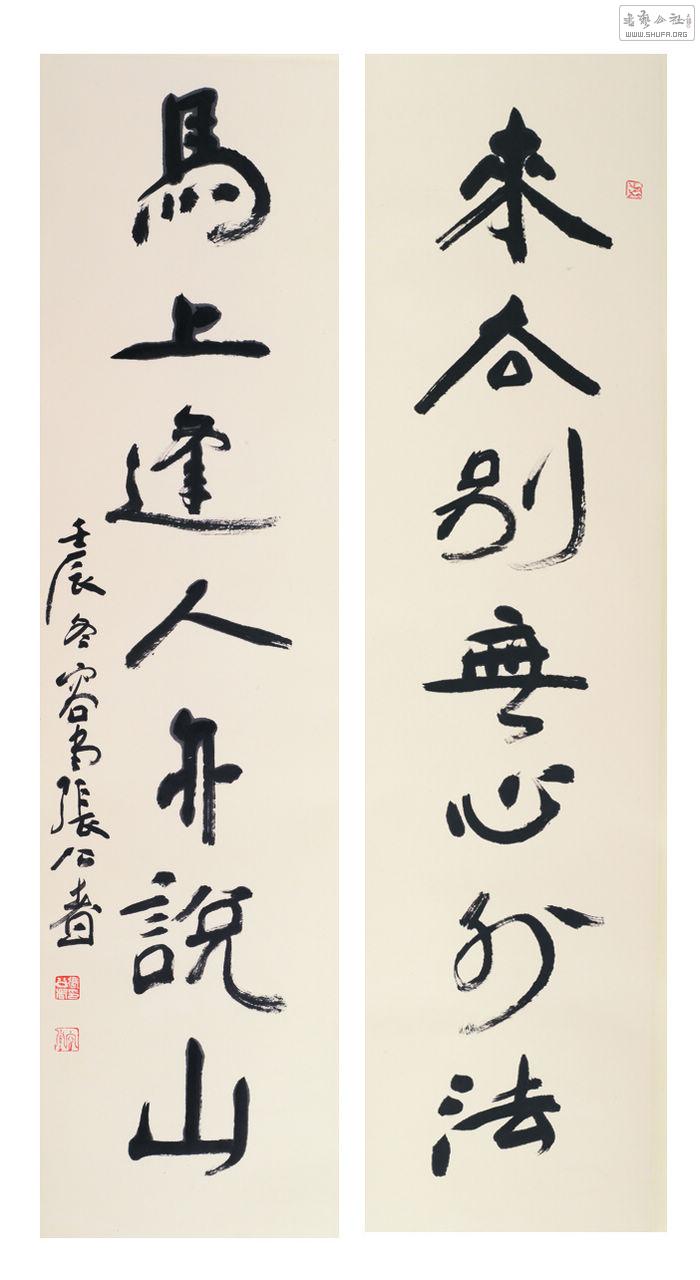 書藝公社
WWW.SHUFA.ORG
來別無心外法
馬上逢人說山
壬辰冬容張公者